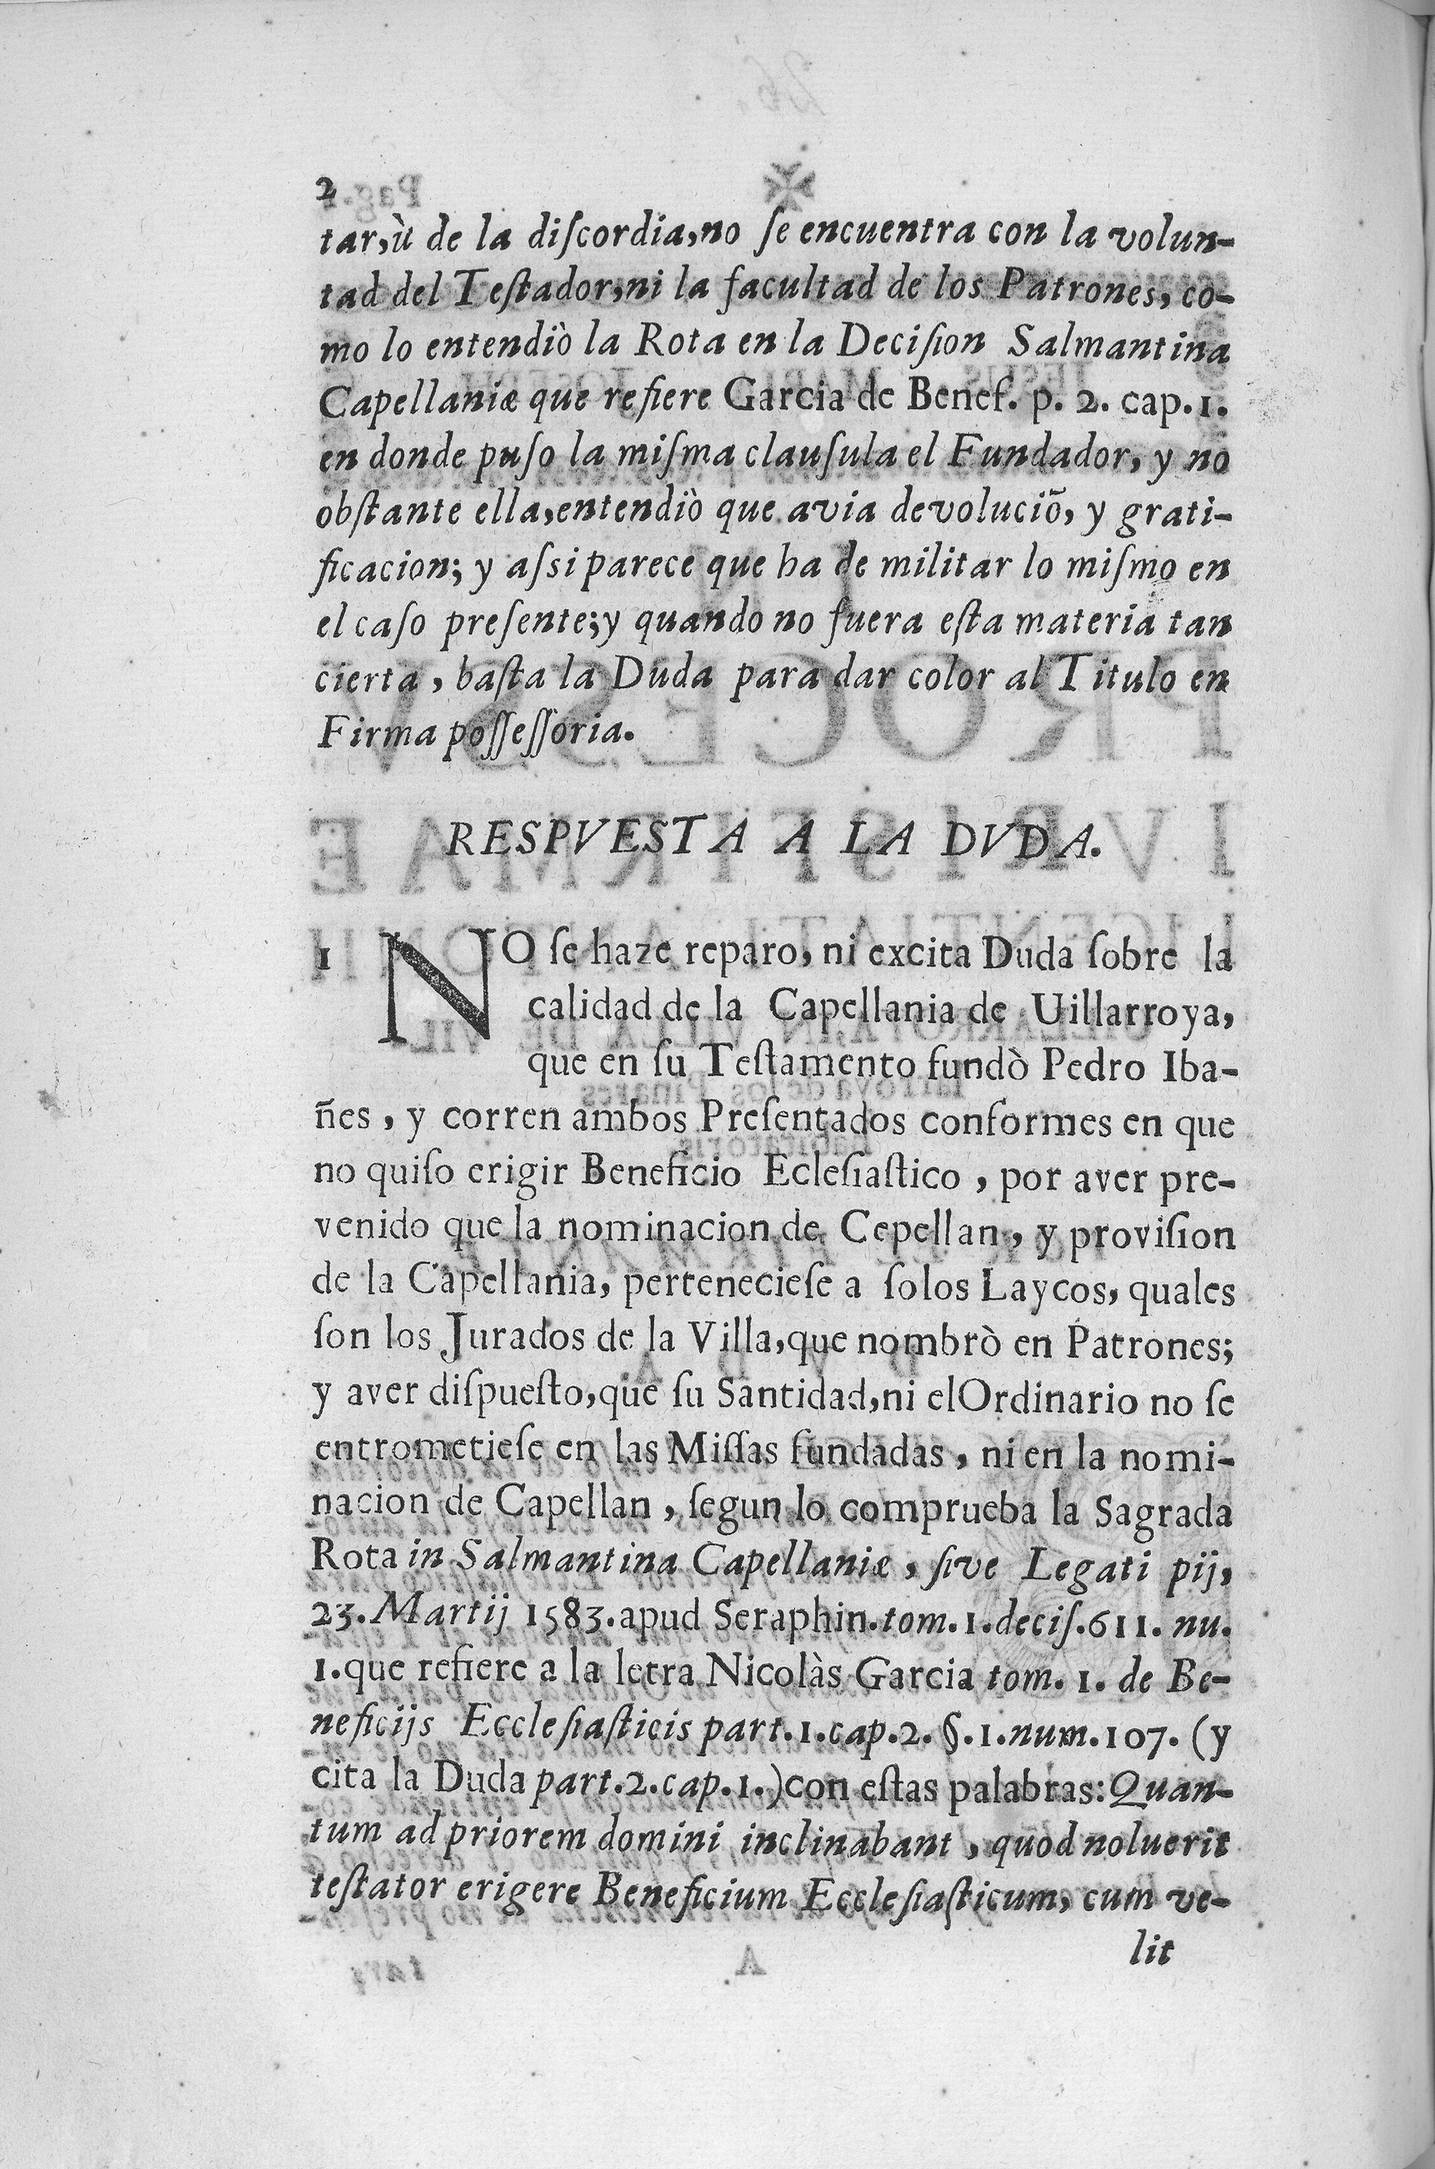 2
tar,ù de la diſcordia,no ſe encuentra con la volun-
tad del Teſtador,ni la facultad de los Patrones, co-
mo lo entendiò la Rota en la Deciſion Salmantina
Capellaniæ que refiere Garcia de Benef. p. 2. cap.1.
en donde puſo la miſma clauſula el Fundador, y no
obſtante ella,entendiò que avia devoluciõ, y grati-
ficacion; y aſsi parece que ha de militar lo miſmo en
el caſo preſente;y quando no fuera eſta materia tan
cierta , baſta la Duda para dar color al Titulo en
Firma poſſeſſoria.
RESPVESTA A LA DVDA.
1 NO ſe haze reparo, ni excita Duda ſobre la
calidad de la Capellania de Uillarroya,
que en ſu Teſtamento fundò Pedro Iba-
ñes , y corren ambos Preſentados conformes en que
no quiſo erigir Beneficio Ecleſiaſtico , por aver pre-
venido que la nominacion de Cepellan , y proviſion
de la Capellania, perteneciеſe a ſolos Laycos, quales
ſon los Jurados de la Villa,que nombrò en Patrones;
y aver diſpueſto,que ſu Santidad,ni elOrdinario no ſe
entrometieſe en las Miſſas fundadas , ni en la nomi-
nacion de Capellan , ſegun lo comprueba la Sagrada
Rota in Salmantina Capellaniæ , ſive Legati pij,
23.Martij 1583.apud Seraphin.tom.1.deciſ.611. nu.
1.que refiere a la letra Nicolàs Garcia tom. 1. de Be-
neficijs Eccleſiaſticis part.1.cap.2. §.1.num.107. (y
cita la Duda part.2.cap.1.)con eſtas palabras:Quan-
tum ad priorem domini inclinabant , quod noluerit
teſtator erigere Beneficium Eccleſiaſticum, cum ve-
lit